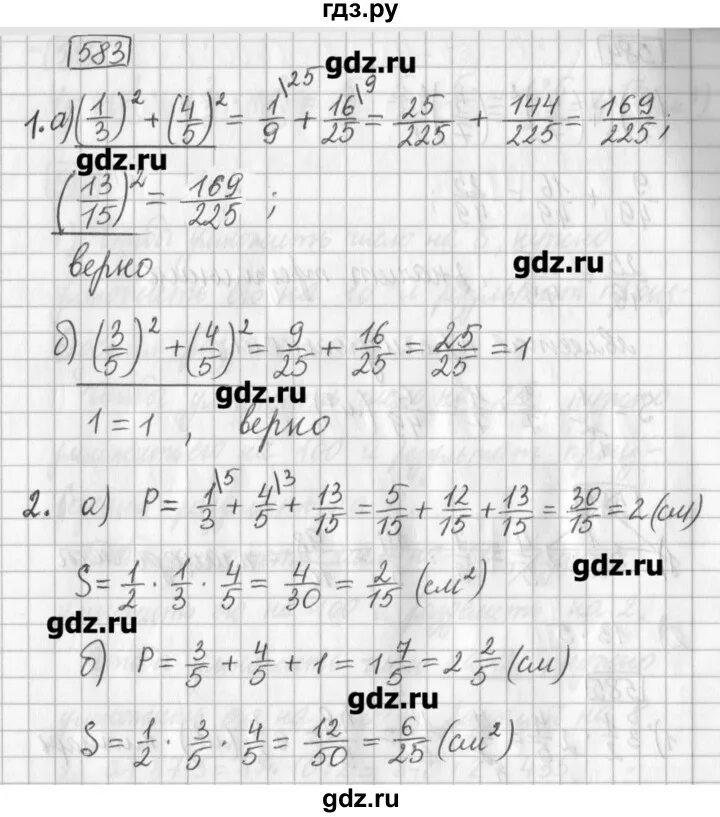 гдз.ру
583
gdz.ru
1. а) (1/3)² + (4/5)² = 1/9 \25 + 16/25 \9 = 25/225 + 144/225 = 169/225;
gdz.ru
(13/15)² = 169/225;
верно
gdz.ru
б) (3/5)² + (4/5)² = 9/25 + 16/25 = 25/25 = 1
gdz.ru
1 = 1, верно
2. а) P = 1/3 \5 + 4/5 \3 + 13/15 = 5/15 + 12/15 + 13/15 = 30/15 = 2 (см)
gdz.ru
S = 1/2 · 1/3 · 4/5 = 4/30 = 2/15 (см²)
gdz.ru
б) P = 3/5 + 4/5 + 1 = 1 7/5 = 2 2/5 (см)
gdz.ru
S = 1/2 · 3/5 · 4/5 = 12/50 = 6/25 (см²)
gdz.ru